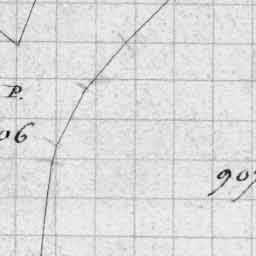 P.
06
907